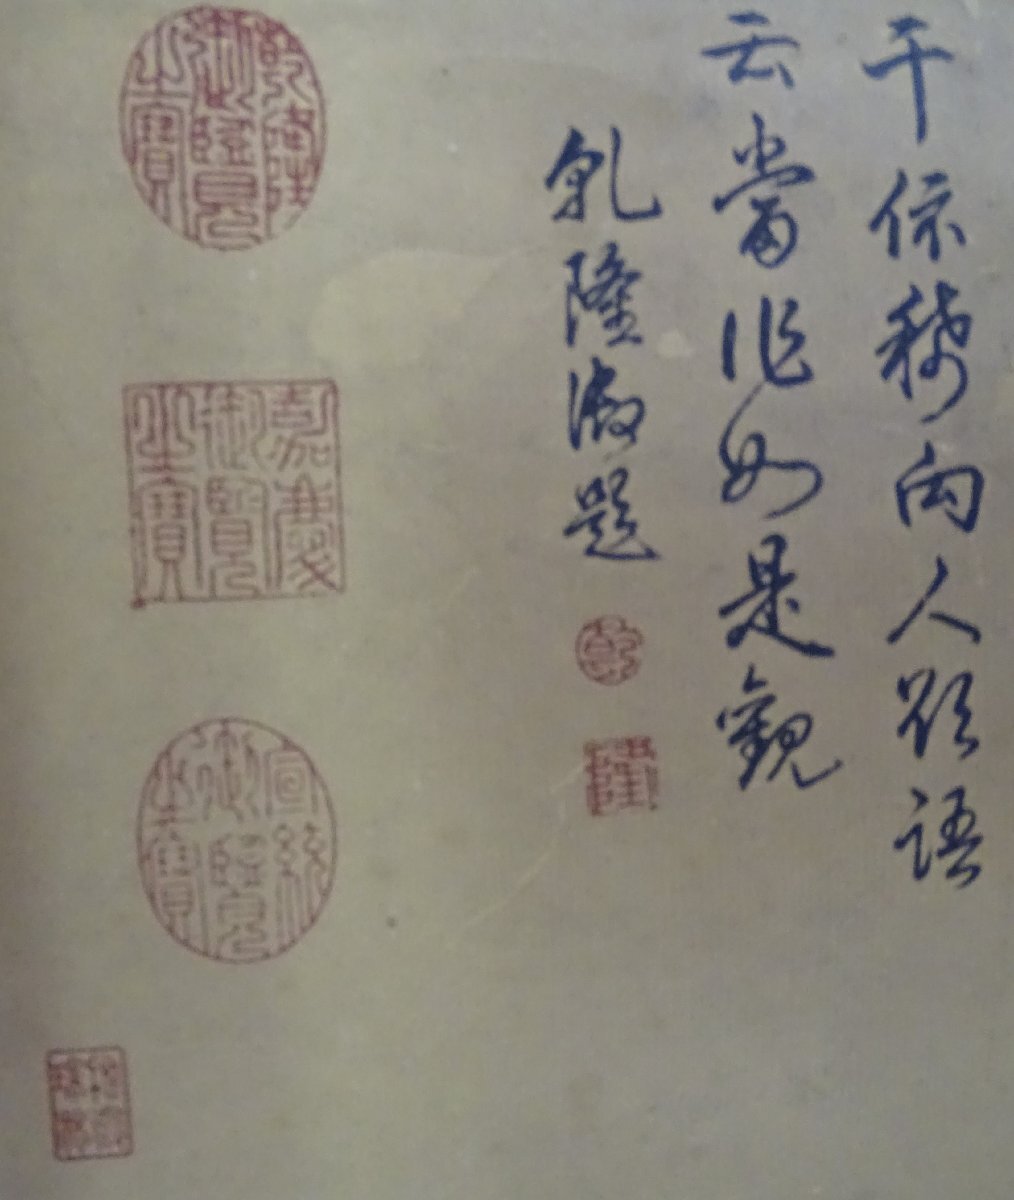 干依稀向人欲語
云當作如是觀
乾隆御題
乾
隆
乾隆御覽之寶
嘉慶御覽之寶
宣統御覽之寶